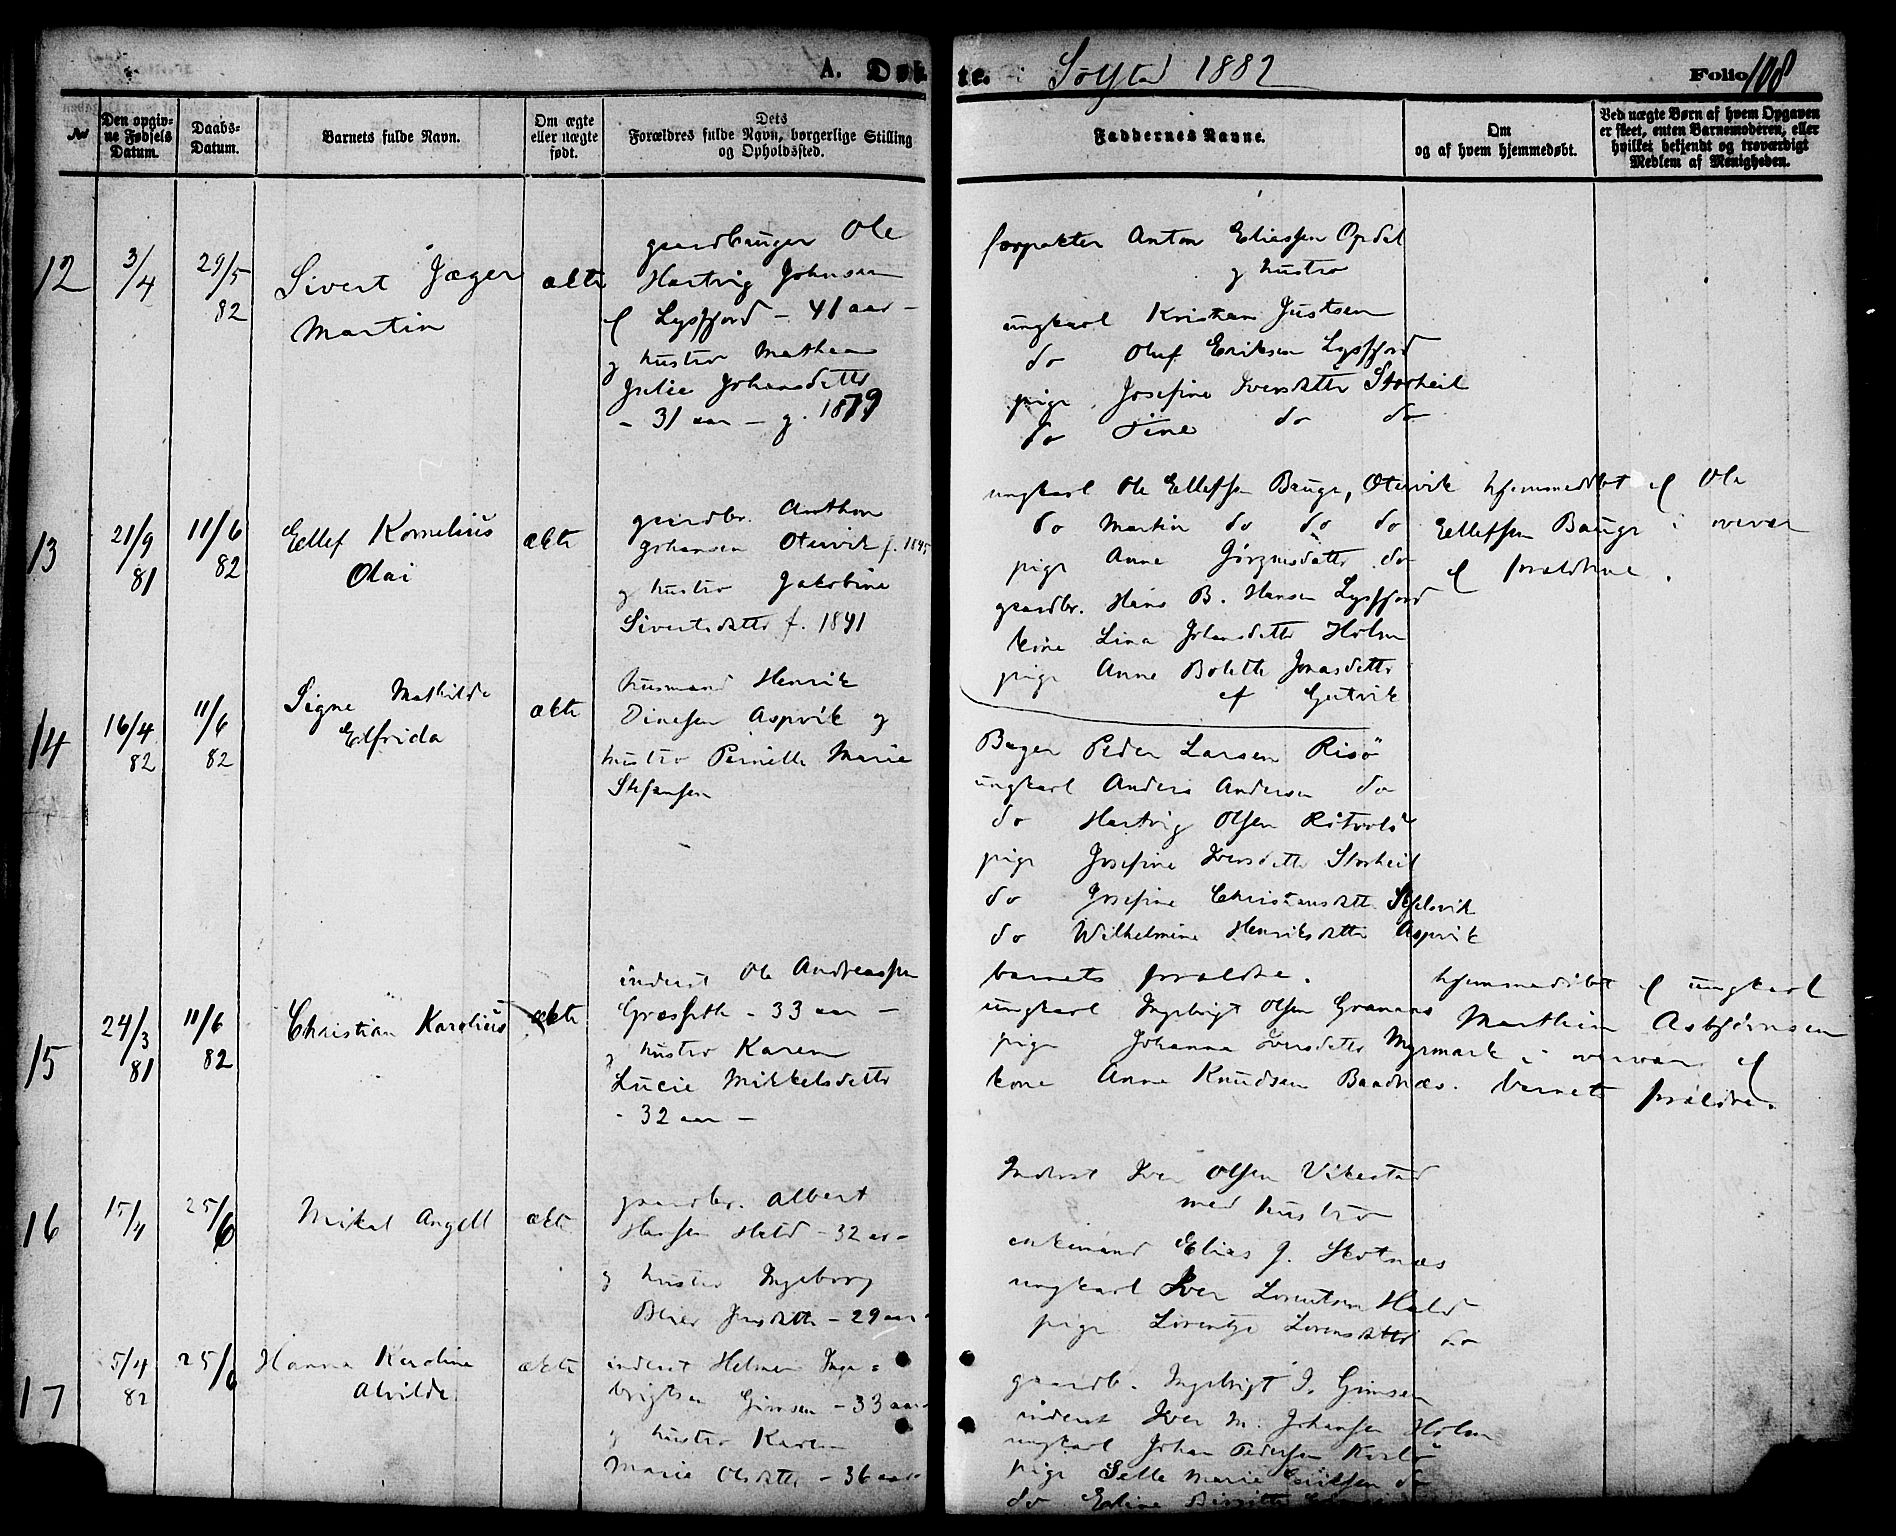 A. Døb
te. Solstad 1882 Folio 108
No
Den opgiv-
ne Fødsels
Datum.
Daabs-
Datum.
Barnets fulde Navn.
Om ægte
eller uægte
født.
Dets
Forældres fulde Navn, borgerlige Stilling
og Opholdssted.
Faddernes Navne.
Om
og af hvem hjemmedøbt.
Ved uægte Børn af hvem Opgaven
er skeet, enten Barnemoderen, eller
hvilket bekjendt og troværdigt
Medlem af Menigheden.
12
3/4
29/5
82
Sivert Jæger
Martin
ækte
gaardbruger Ole
Hartvig Johnsen
Lysfjord - 41 aar -
og hustru Mathea
Julie Johansdatter
- 31 aar - g. 1879
forpakter Anton Eliassen Opdal
og hustru
ungkarl Kristian Justsen
do Oluf Eriksen Lysfjord
pige Josefine Iversdatter Storheil
do Tine do do
13
21/9
81
11/6
82
Ellef Kornelius
Olai
ækte
gaardbr. Anthon
Johansen Otervik f. 1845
og hustru Jakobine
Sivertsdatter f. 1841
ungkarl Ole Ellefsen Bauge, Otervik
do Martin do do do
pige Anne Jørgensdatter do
gaardbr. Hans B. Hansen Lysfjord
kone Lina Johansdatter Holm
pige Anne Bolette Jonasdatter
af Gutvik
hjemmedøbt af Ole
Ellefsen Bauge i overvær
af forældrene.
14
16/4
82
11/6
82
Signe Mathilde
Elfrida
ækte
husmand Henrik
Dinesen Aspvik og
hustru Pernille Marie
Stefansen
Bager Peder Larsen Risö
ungkarl Anders Andersen do
do Hartvig Olsen
pige Josefine Iversdatter Storheil
do Josefine Christensdatter
do Wilhelmine Henriksdatter Aspvik
15
24/3
81
11/6
82
Christian Karelius
ækte
inderst Ole Andreassen
Græsseth - 33 aar -
og hustru Karen
Lucie Mikkelsdatter
- 32 aar -
barnets forældre.
ungkarl Ingebrigt Olsen Grananes
pige Johanna Iversdatter Myrmark
kone Anne Knudsen Baadnæs.
hjemmedöbt af ungkarl
Marthin Asbjörnsen
i overvær af
barnets forældre.
16
15/4
25/6
Mikal Angell
ækte
gaardbr. Albert
Hansen Hald - 32 aar -
og hustru Ingeborg
Berer Jensdatter - 29 aar -
Inderst Iver Olsen Vikestad
med hustru
enkemand Elias J. Skotnæs
ungkarl Iver Lorentsen Hald
pige Lorentze Lorensdatter do
17
5/4
82
25/6
Hanna Karoline
Alvilde
ækte
inderst Helmer Inge-
brigtsen Gimsen - 33 aar -
og hustru Karen
Marie Olsdatter - 36 aar -
gaardb. Ingebrigt I. Gimsen
inderst Iver M. Johansen Holm
ungkarl Johan Pedersen
pige Marie Eriksen do
do Eline